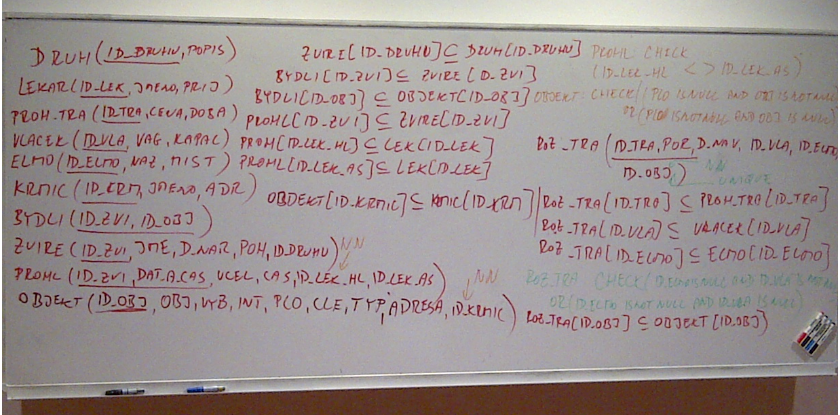 DRUH (ID_DRUHU, POPIS)
LEKAR (ID_LEK, JMENO, PRIJ)
PROH_TRA (ID_TRA, CENA, DOBA)
VLACEK (ID_VLA, VAG, KAPAC)
ELMO (ID_ELMO, NAZ, MIST)
KRMIC (ID_KRM, JMENO, ADR)
BYDLI (ID_ZVI, ID_OBJ)
ZVIRE (ID_ZVI, JME, D_NAR, POH, ID_DRUHU) NN
PROHL (ID_ZVI, DAT_A_CAS, UCEL, CAS, ID_LEK_HL, ID_LEK_AS)
NN
OBJEKT (ID_OBJ, OBJ, VYB, INT, PLO, CLE, TYP, ADRESA, ID_KRMIC)
ZVIRE[ID_DRUHU] ⊆ DRUH[ID_DRUHU]
BYDLI[ID_ZVI] ⊆ ZVIRE[ID_ZVI]
BYDLI[ID_OBJ] ⊆ OBJEKT[ID_OBJ]
PROHL[ID_ZVI] ⊆ ZVIRE[ID_ZVI]
PROH[ID_LEK_HL] ⊆ LEK[ID_LEK]
PROHL[ID_LEK_AS] ⊆ LEK[ID_LEK]
OBJEKT[ID_KRMIC] ⊆ KRMIC[ID_KRM]
PROHL CHECK
(ID_LEK_HL <> ID_LEK_AS)
OBJEKT: CHECK((PLO IS NULL AND OBJ IS NOT NULL)
OR (PLO IS NOT NULL AND OBJ IS NULL)
ROZ_TRA (ID_TRA, POR, D_NAV, ID_VLA, ID_ELMO,
ID_OBJ)
NN
UNIQUE
ROZ_TRA[ID_TRA] ⊆ PROH_TRA[ID_TRA]
ROZ_TRA[ID_VLA] ⊆ VLACEK[ID_VLA]
ROZ_TRA[ID_ELMO] ⊆ ELMO[ID_ELMO]
ROZ_TRA CHECK (ID_ELMO IS NULL AND ID_VLA IS NOT NULL
OR (ID_ELMO IS NOT NULL AND ID_VLA IS NULL)
ROZ_TRA[ID_OBJ] ⊆ OBJEKT[ID_OBJ]